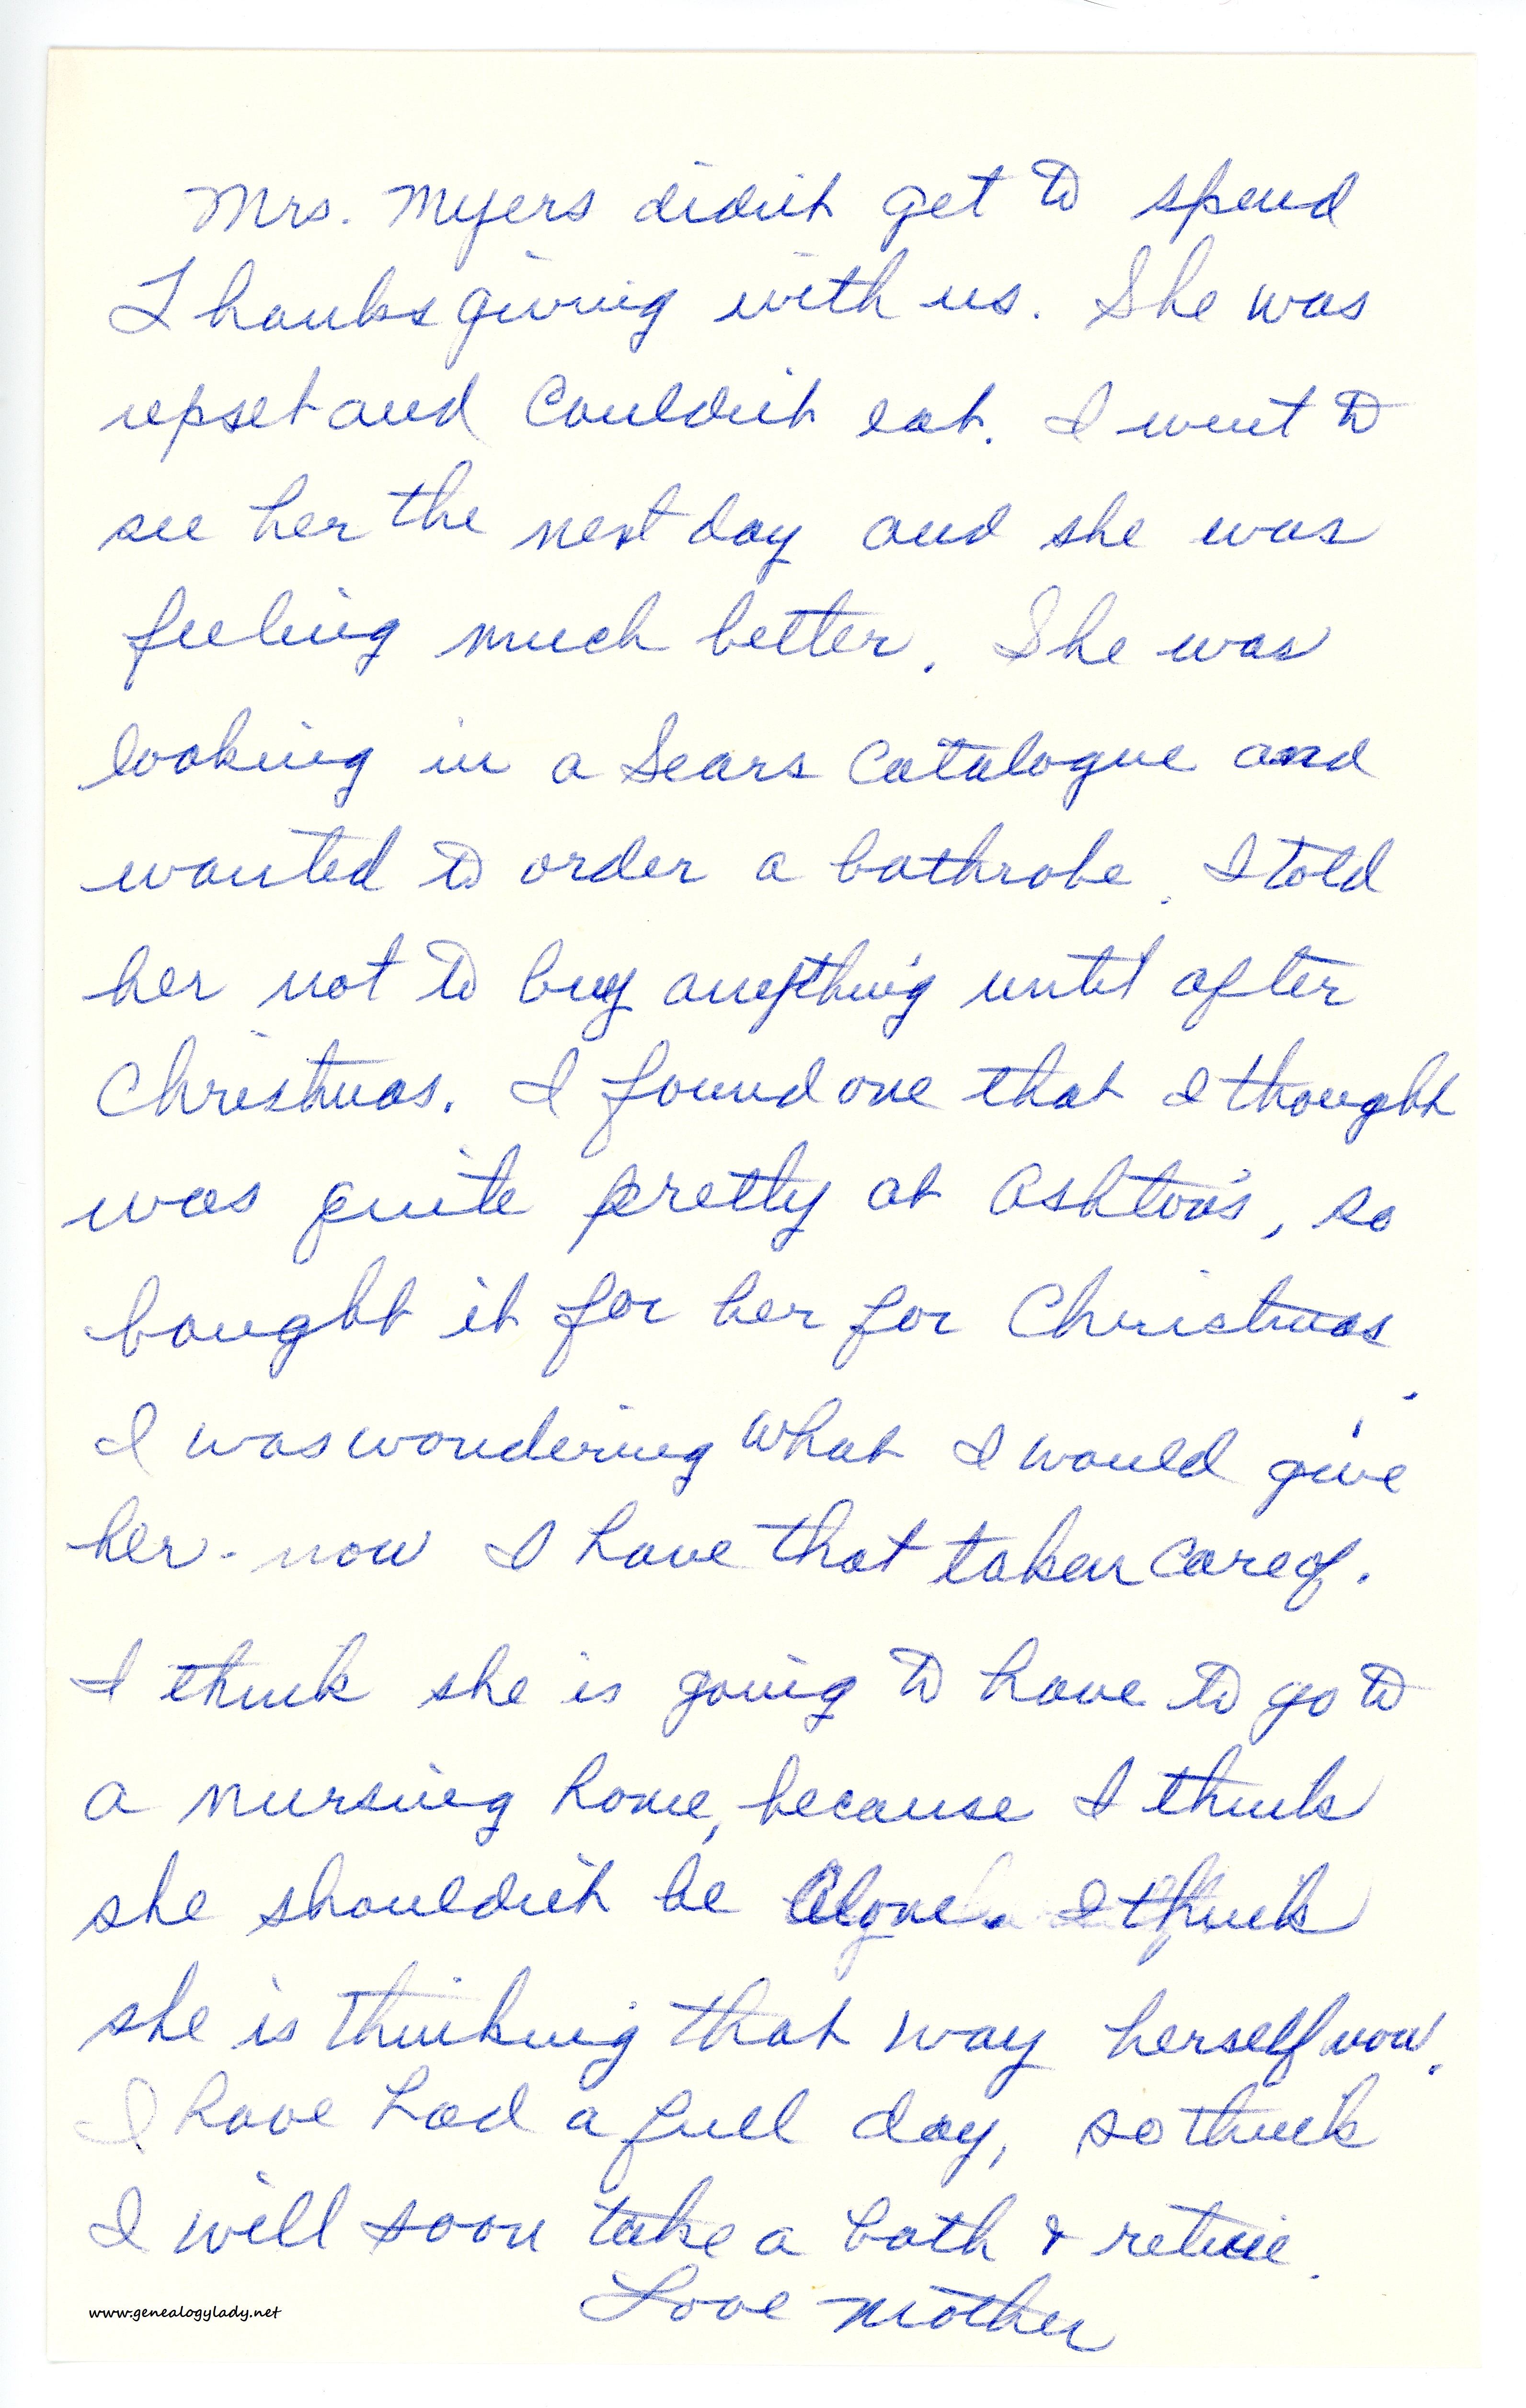 Mrs. Myers didn't get to spend
Thanksgiving with us. She was
upset and couldn't eat. I went to
see her the next day and she was
feeling much better. She was
looking in a Sears Catalogue and
wanted to order a bathrobe. I told
her not to buy anything until after
Christmas. I found one that I thought
was quite pretty at Ashton's, so
bought it for her for Christmas.
I was wondering what I would give
her - now I have that taken care of.
I think she is going to have to go to
a nursing home, because I think
she shouldn't be alone. I think
she is thinking that way herself now.
I have had a full day, so think
I will soon take a bath & retire.
Love Mother
www.genealogylady.net